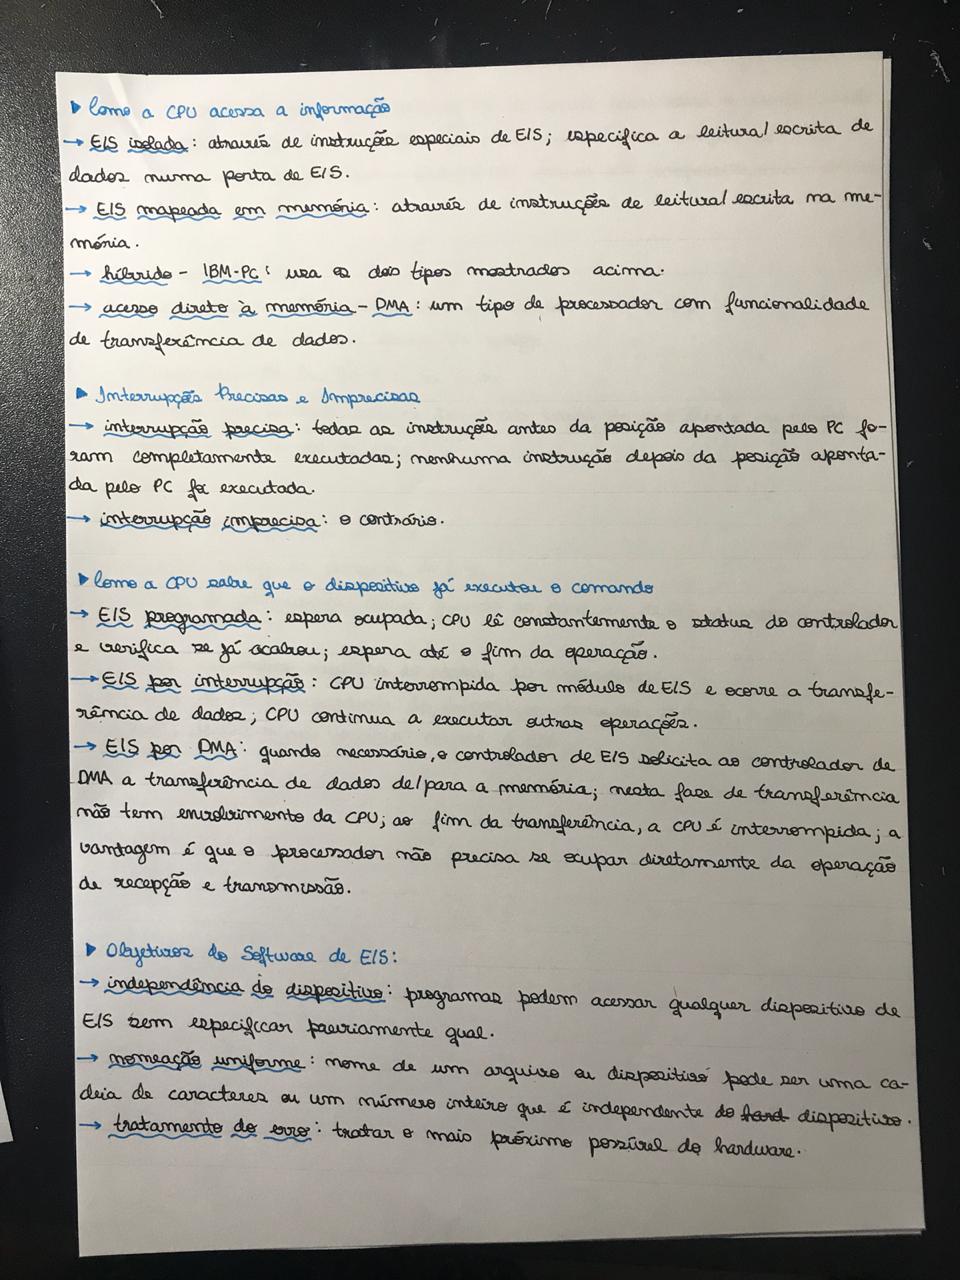 ▶ Como a CPU acessa a informação
→ E/S isolada: através de instruções especiais de E/S; especifica a leitura/escrita de
dados numa porta de E/S.
→ E/S mapeada em memória: através de instruções de leitura/escrita na me-
mória.
→ híbrido - IBM-PC: usa os dois tipos mostrados acima.
→ acesso direto à memória - DMA: um tipo de processador com funcionalidade
de transferência de dados.
▶ Interrupções Precisas e Imprecisas
→ interrupção precisa: todas as instruções antes da posição apontada pelo PC fo-
ram completamente executadas; nenhuma instrução depois da posição aponta-
da pelo PC foi executada.
→ interrupção imprecisa: o contrário.
▶ Como a CPU sabe que o dispositivo já executou o comando
→ E/S programada: espera ocupada; CPU lê constantemente o status do controlador
e verifica se já acabou; espera até o fim da operação.
→ E/S por interrupção: CPU interrompida por módulo de E/S e ocorre a transfe-
rência de dados; CPU continua a executar outras operações.
→ E/S por DMA: quando necessário, o controlador de E/S solicita ao controlador de
DMA a transferência de dados de/para a memória; nesta fase de transferência
não tem envolvimento da CPU; ao fim da transferência, a CPU é interrompida; a
vantagem é que o processador não precisa se ocupar diretamente da operação
de recepção e transmissão.
▶ Objetivos do Software de E/S:
→ independência do dispositivo: programas podem acessar qualquer dispositivo de
E/S sem especificar previamente qual.
→ nomeação uniforme: nome de um arquivo ou dispositivo pode ser uma ca-
deia de caracteres ou um número inteiro que é independente do hard dispositivo.
→ tratamento de erro: tratar o mais próximo possível do hardware.